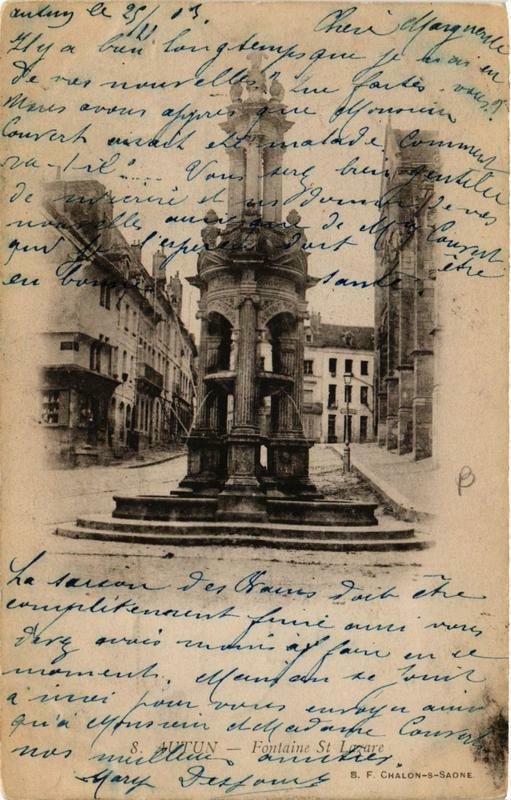 autun le 25/ 03.
Chère Marguerite
Il y a bien longtemps que je n'ai eu
de vos nouvelles que faites vous?
Nous avons appris que Monsieur
Couvert avait été malade comment
va-t-il? Vous serez bien gentille
de m'écrire et nous donner de vos
nouvelles ainsi que de Mr Couvert
qui je l'espère doit être
en bonne santé
La saison des Bains doit être
complètement finie aussi vous
devez avoir moins à faire en ce
moments. Maman se joint
a moi pour vous envoyer ainsi
qu'à Monsieur et Madame Couvert
nos meilleurs amitiés.
Mary
8. AUTUN — Fontaine St Lazare
B. F. CHALON-S-SAONE